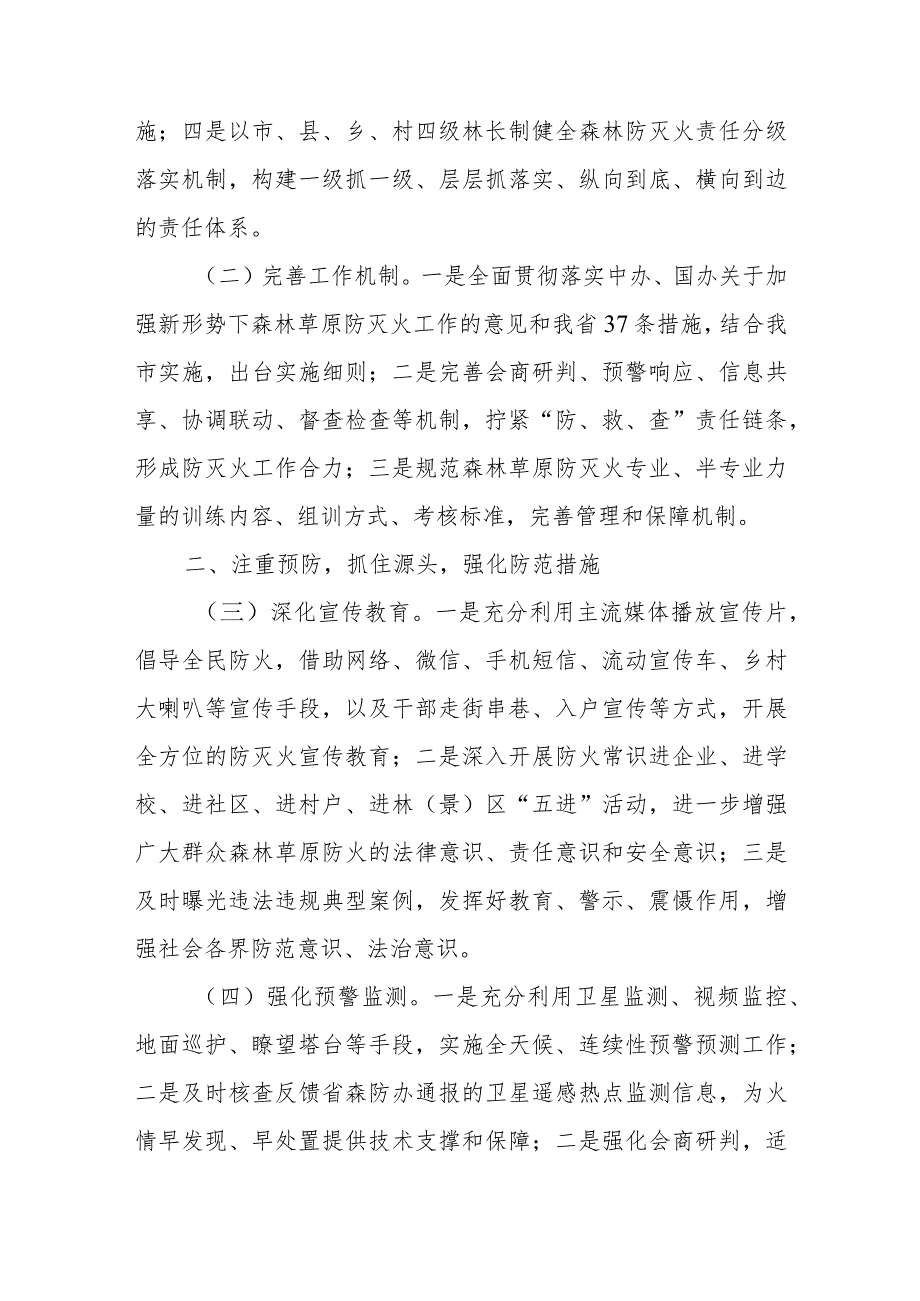 施；四是以市、县、乡、村四级林长制健全森林防灭火责任分级
落实机制，构建一级抓一级、层层抓落实、纵向到底、横向到边
的责任体系。
（二）完善工作机制。一是全面贯彻落实中办、国办关于加
强新形势下森林草原防灭火工作的意见和我省 37 条措施，结合我
市实施，出台实施细则；二是完善会商研判、预警响应、信息共
享、协调联动、督查检查等机制，拧紧“防、救、查”责任链条，
形成防灭火工作合力；三是规范森林草原防灭火专业、半专业力
量的训练内容、组训方式、考核标准，完善管理和保障机制。
二、注重预防，抓住源头，强化防范措施
（三）深化宣传教育。一是充分利用主流媒体播放宣传片，
倡导全民防火，借助网络、微信、手机短信、流动宣传车、乡村
大喇叭等宣传手段，以及干部走街串巷、入户宣传等方式，开展
全方位的防灭火宣传教育；二是深入开展防火常识进企业、进学
校、进社区、进村户、进林（景）区“五进”活动，进一步增强
广大群众森林草原防火的法律意识、责任意识和安全意识；三是
及时曝光违法违规典型案例，发挥好教育、警示、震慑作用，增
强社会各界防范意识、法治意识。
（四）强化预警监测。一是充分利用卫星监测、视频监控、
地面巡护、瞭望塔台等手段，实施全天候、连续性预警预测工作；
二是及时核查反馈省森防办通报的卫星遥感热点监测信息，为火
情早发现、早处置提供技术支撑和保障；二是强化会商研判，适